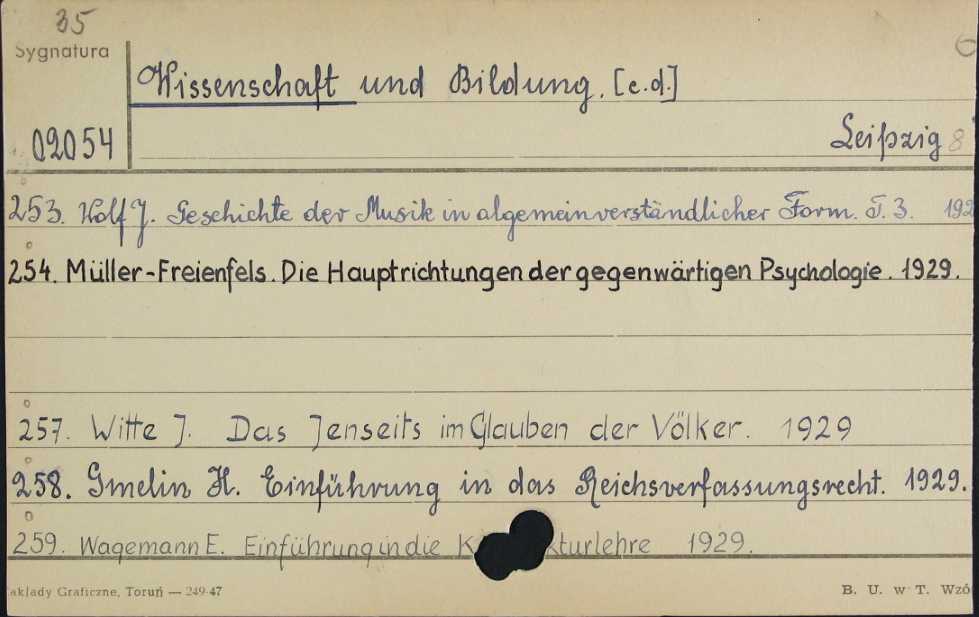 35
Sygnatura
Wissenschaft und Bildung. [c.d.]
02054
Leipzig 8
253. Wolf J. Geschichte der Musik in algemeinverständlicher Form. T. 3. 192
254. Müller-Freienfels. Die Hauptrichtungen der gegenwärtigen Psychologie. 1929.
257. Witte J. Das Jenseits im Glauben der Völker. 1929
258. Gmelin H. Einführung in das Reichsverfassungsrecht. 1929.
259. Wagemann E. Einführung in die K kturlehre 1929.
akłady Graficzne, Toruń — 249-47
B. U. w T. Wzó